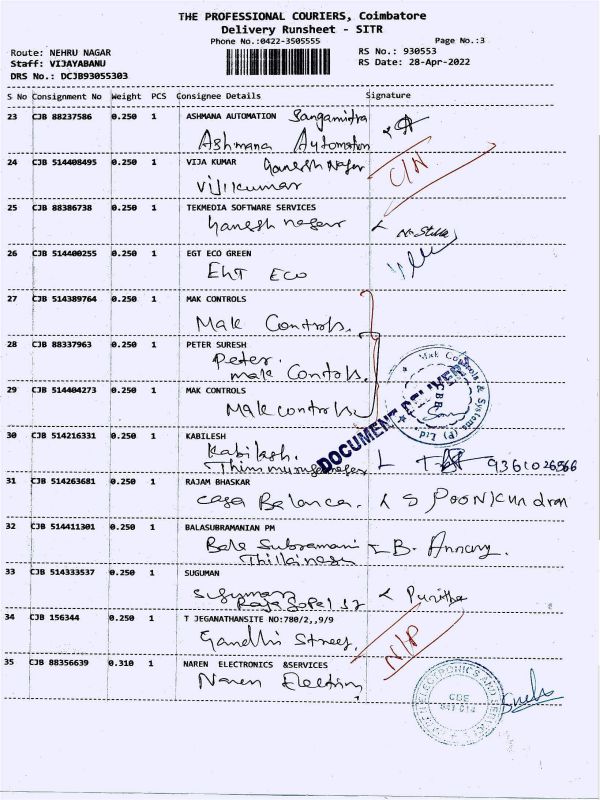 THE PROFESSIONAL COURIERS, Coimbatore
Delivery Runsheet - SITR
Phone No.:0422-3505555
Page No.:3
Route: NEHRU NAGAR
RS No.: 930553
Staff: VIJAYABANU
RS Date: 28-Apr-2022
DRS No.: DCJB93055303
S No Consignment No Weight PCS Consignee Details Signature
23 CJB 88237586 0.250 1 ASHMANA AUTOMATION Sangamitra
Ashmana Automation
24 CJB 514408495 0.250 1 VIJA KUMAR Ganesh Nagar
Vijikumar C/N
25 CJB 88386738 0.250 1 TEKMEDIA SOFTWARE SERVICES
Ganesh nagar
26 CJB 514400255 0.250 1 EGT ECO GREEN
EhT ECO
27 CJB 514389764 0.250 1 MAK CONTROLS
Mak Controls.
28 CJB 88337963 0.250 1 PETER SURESH
Peter.
mak Controls.
29 CJB 514404273 0.250 1 MAK CONTROLS
Mak controls.
Mak Controls & Systems (P) Ltd
CBE
DOCUMENT DELIVERY
30 CJB 514216331 0.250 1 KABILESH
Kabilesh.
9361026566
31 CJB 514263681 0.250 1 RAJAM BHASKAR
Casa Balanca. S POONKUNDRAN
32 CJB 514411301 0.250 1 BALASUBRAMANIAN PM
Bala Subramani B.
Thillainagar
33 CJB 514333537 0.250 1 SUGUMAN
Suguman Punitha
34 CJB 156344 0.250 1 T JEGANATHANSITE NO:780/2,,9/9
Gandhi Street, N/P
35 CJB 88356639 0.310 1 NAREN ELECTRONICS &SERVICES
Naren
ELECTRONICS AND SERVICES
CBE
641 014